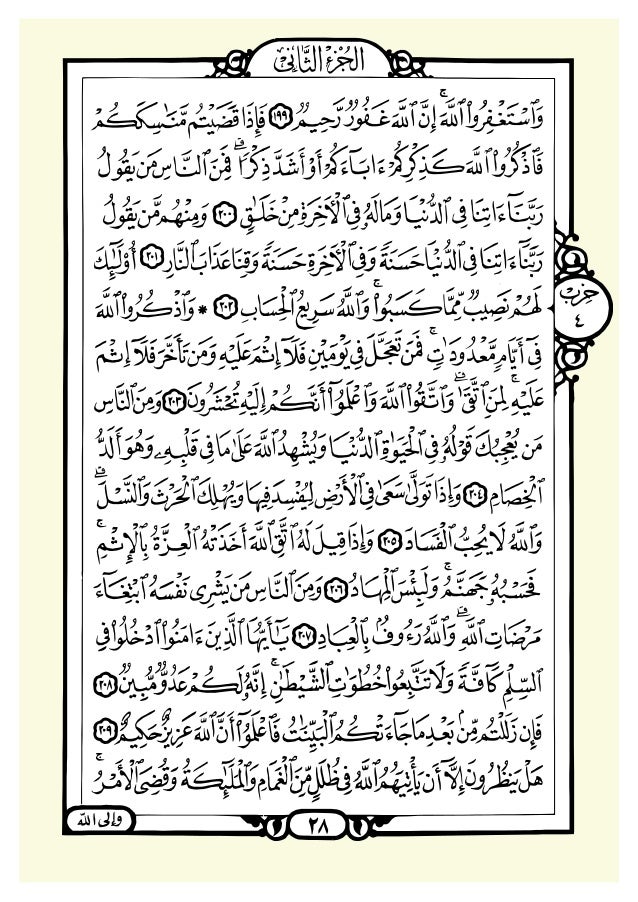 الجُزْءُ الثَّانِي
وَٱسْتَغْفِرُوا۟ ٱللَّهَ ۚ إِنَّ ٱللَّهَ غَفُورٌ رَّحِيمٌ ١٩٩ فَإِذَا قَضَيْتُم مَّنَـٰسِكَكُمْ
فَٱذْكُرُوا۟ ٱللَّهَ كَذِكْرِكُمْ ءَابَآءَكُمْ أَوْ أَشَدَّ ذِكْرًا ۗ فَمِنَ ٱلنَّاسِ مَن يَقُولُ
رَبَّنَآ ءَاتِنَا فِى ٱلدُّنْيَا وَمَا لَهُۥ فِى ٱلْـَٔاخِرَةِ مِنْ خَلَـٰقٍ ٢٠٠ وَمِنْهُم مَّن يَقُولُ
رَبَّنَآ ءَاتِنَا فِى ٱلدُّنْيَا حَسَنَةً وَفِى ٱلْـَٔاخِرَةِ حَسَنَةً وَقِنَا عَذَابَ ٱلنَّارِ ٢٠١ أُو۟لَـٰٓئِكَ
لَهُمْ نَصِيبٌ مِّمَّا كَسَبُوا۟ ۚ وَٱللَّهُ سَرِيعُ ٱلْحِسَابِ ٢٠٢ * وَٱذْكُرُوا۟ ٱللَّهَ
حزب
٤
فِىٓ أَيَّامٍ مَّعْدُودَٰتٍ ۚ فَمَن تَعَجَّلَ فِى يَوْمَيْنِ فَلَآ إِثْمَ عَلَيْهِ وَمَن تَأَخَّرَ فَلَآ إِثْمَ
عَلَيْهِ ۚ لِمَنِ ٱتَّقَىٰ ۗ وَٱتَّقُوا۟ ٱللَّهَ وَٱعْلَمُوٓا۟ أَنَّكُمْ إِلَيْهِ تُحْشَرُونَ ٢٠٣ وَمِنَ ٱلنَّاسِ
مَن يُعْجِبُكَ قَوْلُهُۥ فِى ٱلْحَيَوٰةِ ٱلدُّنْيَا وَيُشْهِدُ ٱللَّهَ عَلَىٰ مَا فِى قَلْبِهِۦ وَهُوَ أَلَدُّ
ٱلْخِصَامِ ٢٠٤ وَإِذَا تَوَلَّىٰ سَعَىٰ فِى ٱلْأَرْضِ لِيُفْسِدَ فِيهَا وَيُهْلِكَ ٱلْحَرْثَ وَٱلنَّسْلَ ۗ
وَٱللَّهُ لَا يُحِبُّ ٱلْفَسَادَ ٢٠٥ وَإِذَا قِيلَ لَهُ ٱتَّقِ ٱللَّهَ أَخَذَتْهُ ٱلْعِزَّةُ بِٱلْإِثْمِ ۚ
فَحَسْبُهُۥ جَهَنَّمُ ۚ وَلَبِئْسَ ٱلْمِهَادُ ٢٠٦ وَمِنَ ٱلنَّاسِ مَن يَشْرِى نَفْسَهُ ٱبْتِغَآءَ
مَرْضَاتِ ٱللَّهِ ۗ وَٱللَّهُ رَءُوفٌۢ بِٱلْعِبَادِ ٢٠٧ يَـٰٓأَيُّهَا ٱلَّذِينَ ءَامَنُوا۟ ٱدْخُلُوا۟ فِى
ٱلسِّلْمِ كَآفَّةً وَلَا تَتَّبِعُوا۟ خُطُوَٰتِ ٱلشَّيْطَـٰنِ ۚ إِنَّهُۥ لَكُمْ عَدُوٌّ مُّبِينٌ ٢٠٨
فَإِن زَلَلْتُم مِّنۢ بَعْدِ مَا جَآءَتْكُمُ ٱلْبَيِّنَـٰتُ فَٱعْلَمُوٓا۟ أَنَّ ٱللَّهَ عَزِيزٌ حَكِيمٌ ٢٠٩
هَلْ يَنظُرُونَ إِلَّآ أَن يَأْتِيَهُمُ ٱللَّهُ فِى ظُلَلٍ مِّنَ ٱلْغَمَامِ وَٱلْمَلَـٰٓئِكَةُ وَقُضِىَ ٱلْأَمْرُ ۚ
٢٨
وإلى الله